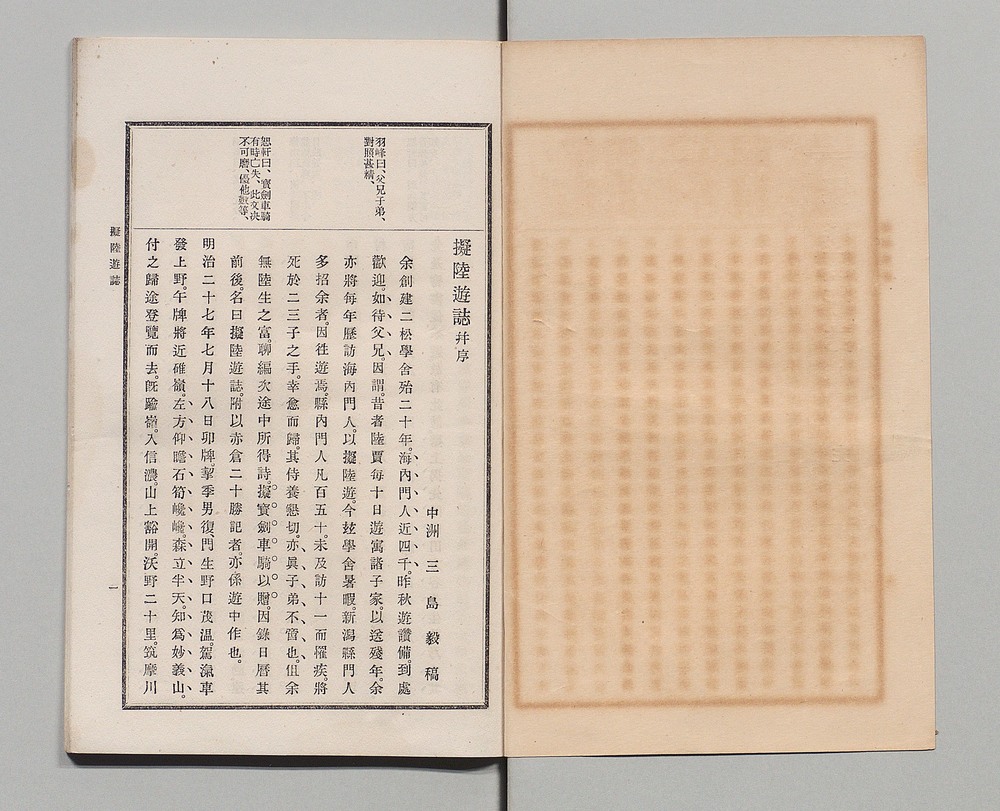 羽峰曰、父兄子弟、
對照甚績、
恕軒曰、寶劍車騎
有時亡失、此文决
不可磨、優他數等、
擬陸遊誌 幷序
中洲 三島毅稿
余創建二松學舍殆二十年。海內門人近四千。昨秋遊讚備。到處
歡迎。如待父兄。因謂。昔者陸賈每十日遊寓諸子家。以送殘年。余
亦將每年歷訪海內門人。以擬陸遊。今玆學舍暑暇。新潟縣門人
多招余者。因徃遊焉。縣內門人凡百五十。未及訪十一而罹疾。將
死於二三子之手。幸愈而歸。其侍養懇切。亦眞子弟不啻也。但余
無陸生之富。聊編次途中所得詩。擬寶劍車騎以贈。因錄日曆其
前後。名曰擬陸遊誌。附以赤倉二十勝記者。亦係遊中作也。
明治二十七年七月十八日卯牌。挈季男復、門生野口茂溫。駕滊車
發上野。午牌將近碓嶺。左方仰瞻石筍巉巉。森立半天。知爲妙義山。
付之歸途登覽而去。旣踰嶺。入信濃。山上豁開。沃野二十里。筑摩川
擬陸遊誌
一